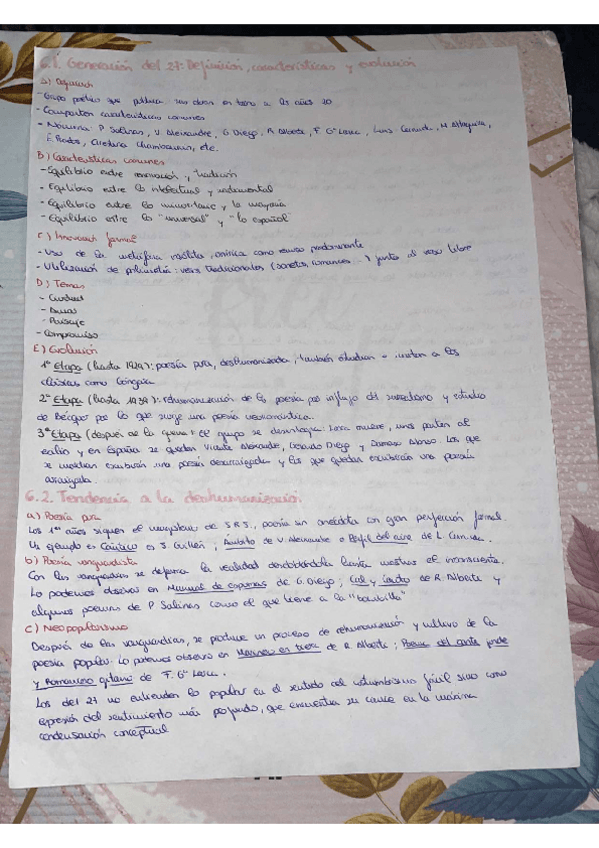 6.1. Generación del 27: Definición, características y evolución
a) Definición
- Grupo poético que publica sus obras en torno a los años 20
- Comparten características comunes
- Nómina: P. Salinas, V. Aleixandre, G. Diego, R. Alberti, F. Gª Lorca, Luis Cernuda, M. Altolaguirre,
E. Prados, Ernestina Champourcin, etc.
B) Características comunes
- Equilibrio entre renovación y tradición
- Equilibrio entre lo intelectual y sentimental
- Equilibrio entre lo minoritario y la mayoría
- Equilibrio entre lo "universal" y "lo español"
C) Innovación formal
- Uso de la metáfora insólita, onírica como recurso predominante
- Utilización de polimetría: versos tradicionales (sonetos, romances ...) junto al verso libre
D) Temas
- Ciudad
- Amor
- Paisaje
- Compromiso
E) Evolución
1ª Etapa (hasta 1929): poesía pura, deshumanizada, también estudian e imitan a los
clásicos como Góngora.
2ª Etapa (hasta 1939): rehumanización de la poesía por influjo del surrealismo y estudio
de Bécquer por lo que surge una poesía neorromántica.
3ª Etapa (después de la guerra): el grupo se desintegra: Lorca muere, unos parten al
exilio y en España se quedan Vicente Aleixandre, Gerardo Diego y Dámaso Alonso. Los que
se exilian escribirán una poesía desarraigada y los que quedan escribirán una poesía
arraigada.
6.2. Tendencia a la deshumanización
a) Poesía pura
Los 1ºs años siguen el magisterio de J.R.J., poesía sin anécdota con gran perfección formal
Un ejemplo es Cántico de J. Guillén; Ámbito de V. Aleixandre o Perfil del aire de L. Cernuda.
b) Poesía vanguardista
Con las vanguardias se deforma la realidad desdoblándola hasta mostrar el inconsciente.
Lo podemos observar en Manual de espumas de G. Diego; Cal y Canto de R. Alberti y
algunos poemas de P. Salinas como el que tiene a la "bombilla"
C) Neopopularismo
Después de las vanguardias, se produce un proceso de rehumanización y cultivo de la
poesía popular. Lo podemos observar en Marinero en tierra de R. Alberti; Poema del cante jondo
y Romancero gitano de F. Gª Lorca.
Los del 27 no entienden lo popular en el sentido del costumbrismo fácil sino como
expresión del sentimiento más profundo, que encuentra su cauce en la máxima
condensación conceptual